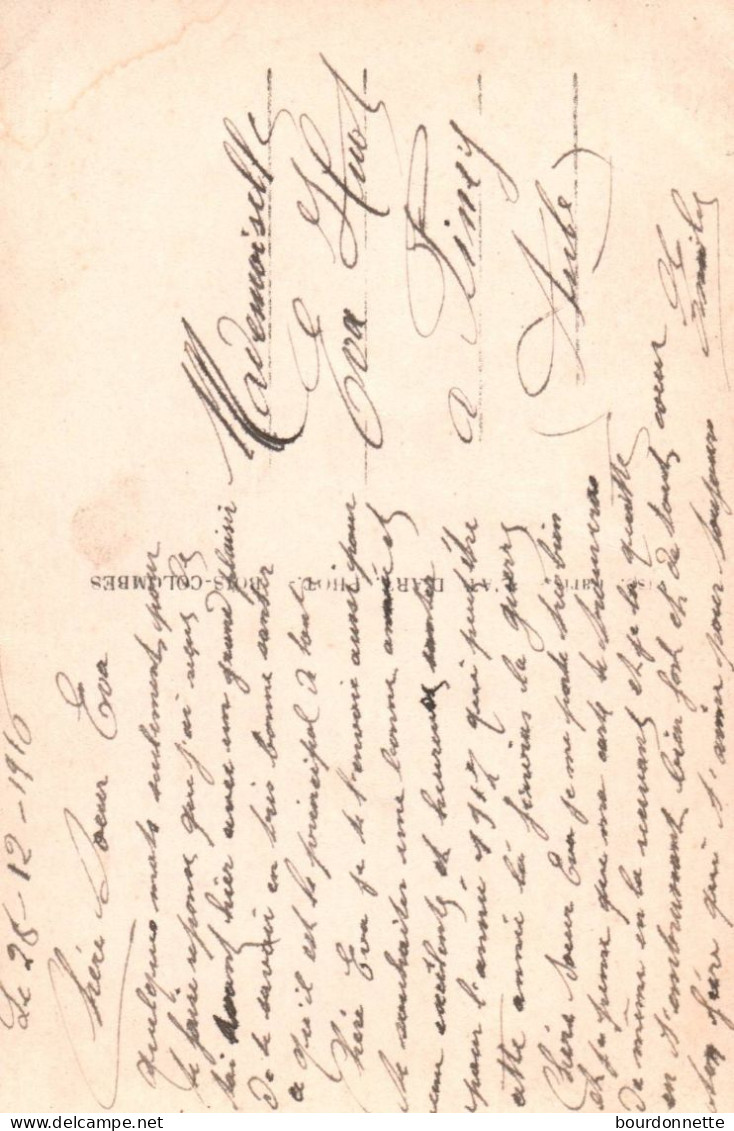 Le 28-12-1916
Chère Soeur Eva
Quelques mots seulement pour
te faire réponse que j'ai reçu
hier avec un grand plaisir
de te savoir en très bonne santer
ce qu'il est le principal a tout
Chère Eva je te l'envoie aussi pour
te souhaiter une bonne année et
une exellente et heureuse santer
pour l'année 1917 qui peut être
cette année là finiras la guerre
Chère Soeur Eva je me porte très bien
et je pense que ma carte te trouveras
de même en la recevant et je te quitte
en t'embrassant bien fort et de tout coeur
ton frère qui t'aime pour toujours
Emile
Mademoiselle
Eva Huot
a Piney
(Aube)
PHOT. BOIS-COLOMBES
bourdonnette